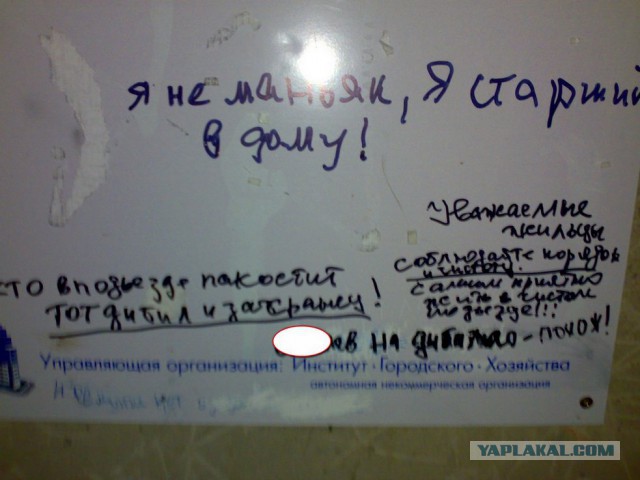 Я не маньяк, Я старший
в дому!
Уважаемые
жильцы
соблюдайте порядок
и чистоту!
самим приятно
жить в чистом
подъезде!!!
кто в подъезде пакостит
тот дибил и засранец!
ав на дибила - похож!
Управляющая организация: Институт · Городского · Хозяйства
автономная некоммерческая организация
YAPLAKAL.COM